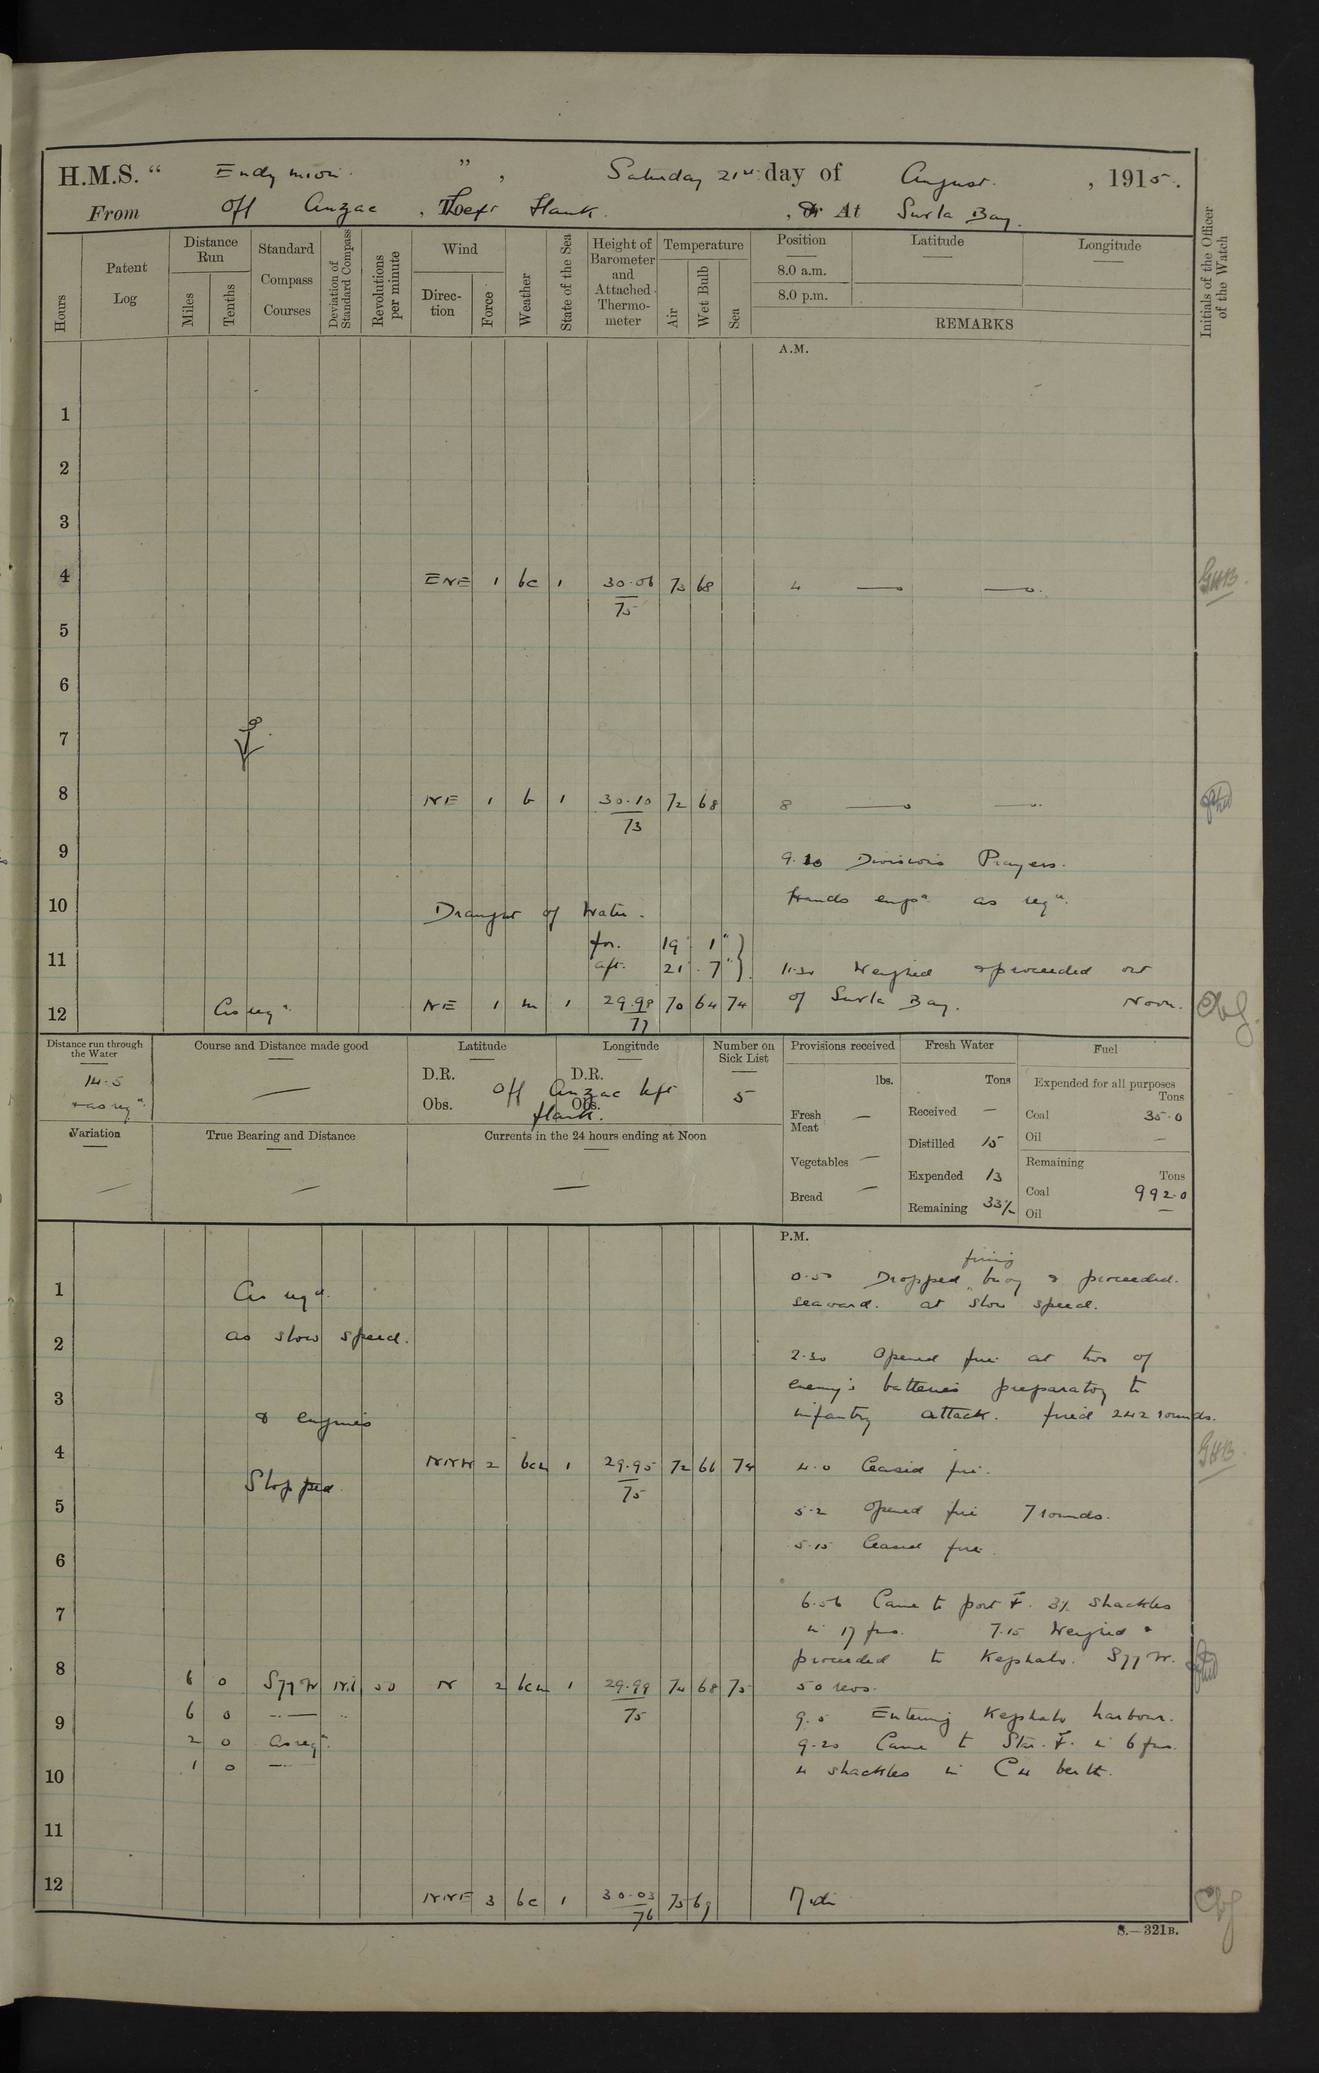 H.M.S. “ Endymion. ”, Saturday 21st day of August. , 1915.
From Off Anzac , Left Flank. , Or At Suvla Bay.
Hours
Patent Log
Distance Run
Miles
Tenths
Standard Compass Courses
Deviation of Standard Compass
Revolutions per minute
Wind
Direc-tion
Force
Weather
State of the Sea
Height of Barometer and Attached Thermo-meter
Temperature
Air
Wet Bulb
Sea
Position
8.0 a.m.
8.0 p.m.
Latitude
Longitude
REMARKS
Initials of the Officer of the Watch
A.M.
1
2
3
4 ENE 1 bc 1 30.06 73 68 4 GHB.
75
5
6
7
8 NE 1 b 1 30.10 72 68 8
73
9 9.10 Divisions Prayers.
10 Draught of Water. Hands engd as reqd.
for. 19' 1"
11 aft. 21' 7" 11.30 Weighed & proceeded out
12 As reqd. NE 1 m 1 29.98 70 64 74 of Suvla Bay. Noon.
77
Distance run through the Water
14.5
+ as reqd.
Course and Distance made good
Latitude
D.R.
Obs.
Longitude
D.R.
Obs.
Off Anzac left
flank.
Number on Sick List
5
Provisions received
lbs.
Fresh Meat —
Vegetables —
Bread —
Fresh Water
Tons
Received —
Distilled 15
Expended 13
Remaining 33½
Fuel
Expended for all purposes
Tons
Coal 35.0
Oil —
Remaining
Tons
Coal 992.0
Oil —
Variation
True Bearing and Distance
Currents in the 24 hours ending at Noon
P.M.
firing
0.50 Dropped buoy & proceeded.
1 As reqd. seaward. at slow speed.
2 as slow speed.
2.30 Opened fire at two of
3 enemy's batteries preparatory to
& engines infantry attack. fired 242 rounds.
4 NNW 2 bcm 1 29.95 72 66 74 4.0 Ceased fire. GHB.
75
Stopped.
5 5.2 Opened fire 7 rounds.
6 5.15 Ceased fire.
6.56 Came to port ⚓. 3½ shackles
7 in 17 fms. 7.15 Weighed &
proceeded to Kephalo. S77W.
8 6 0 S77W Nil 50 N 2 bcm 1 29.99 74 68 75 50 revs.
75
9 6 0 9.5 Entering Kephalo harbour.
2 0 as reqd. 9.20 Came to Star. ⚓. in 6 fms.
10 1 0 4 shackles in C4 berth.
11
12 NNE 3 bc 1 30.03 75 69 Mdt
76
S.—321B.